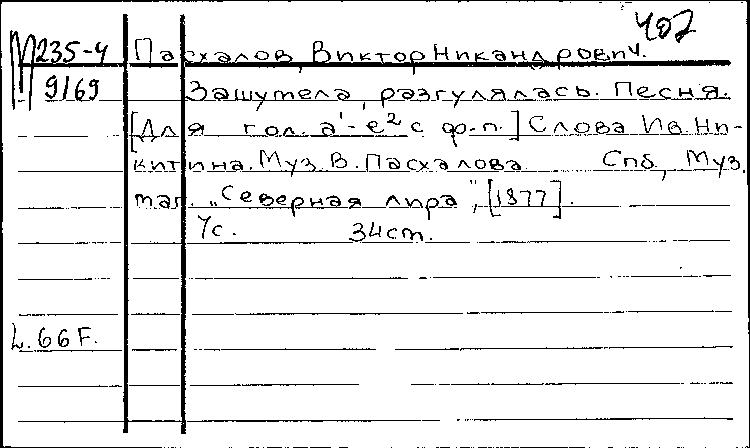 402
М235-4 Пасхалов, Виктор Никандрович.
9/69 Зашумела, разгулялась. Песня.
[Для гол. a¹-e² с ф.п.] Слова Ив. Ни-
китина. Муз. В. Пасхалова. Спб, Муз.
маг. „Северная лира", [1877].
7с. 34см.
L.66F.